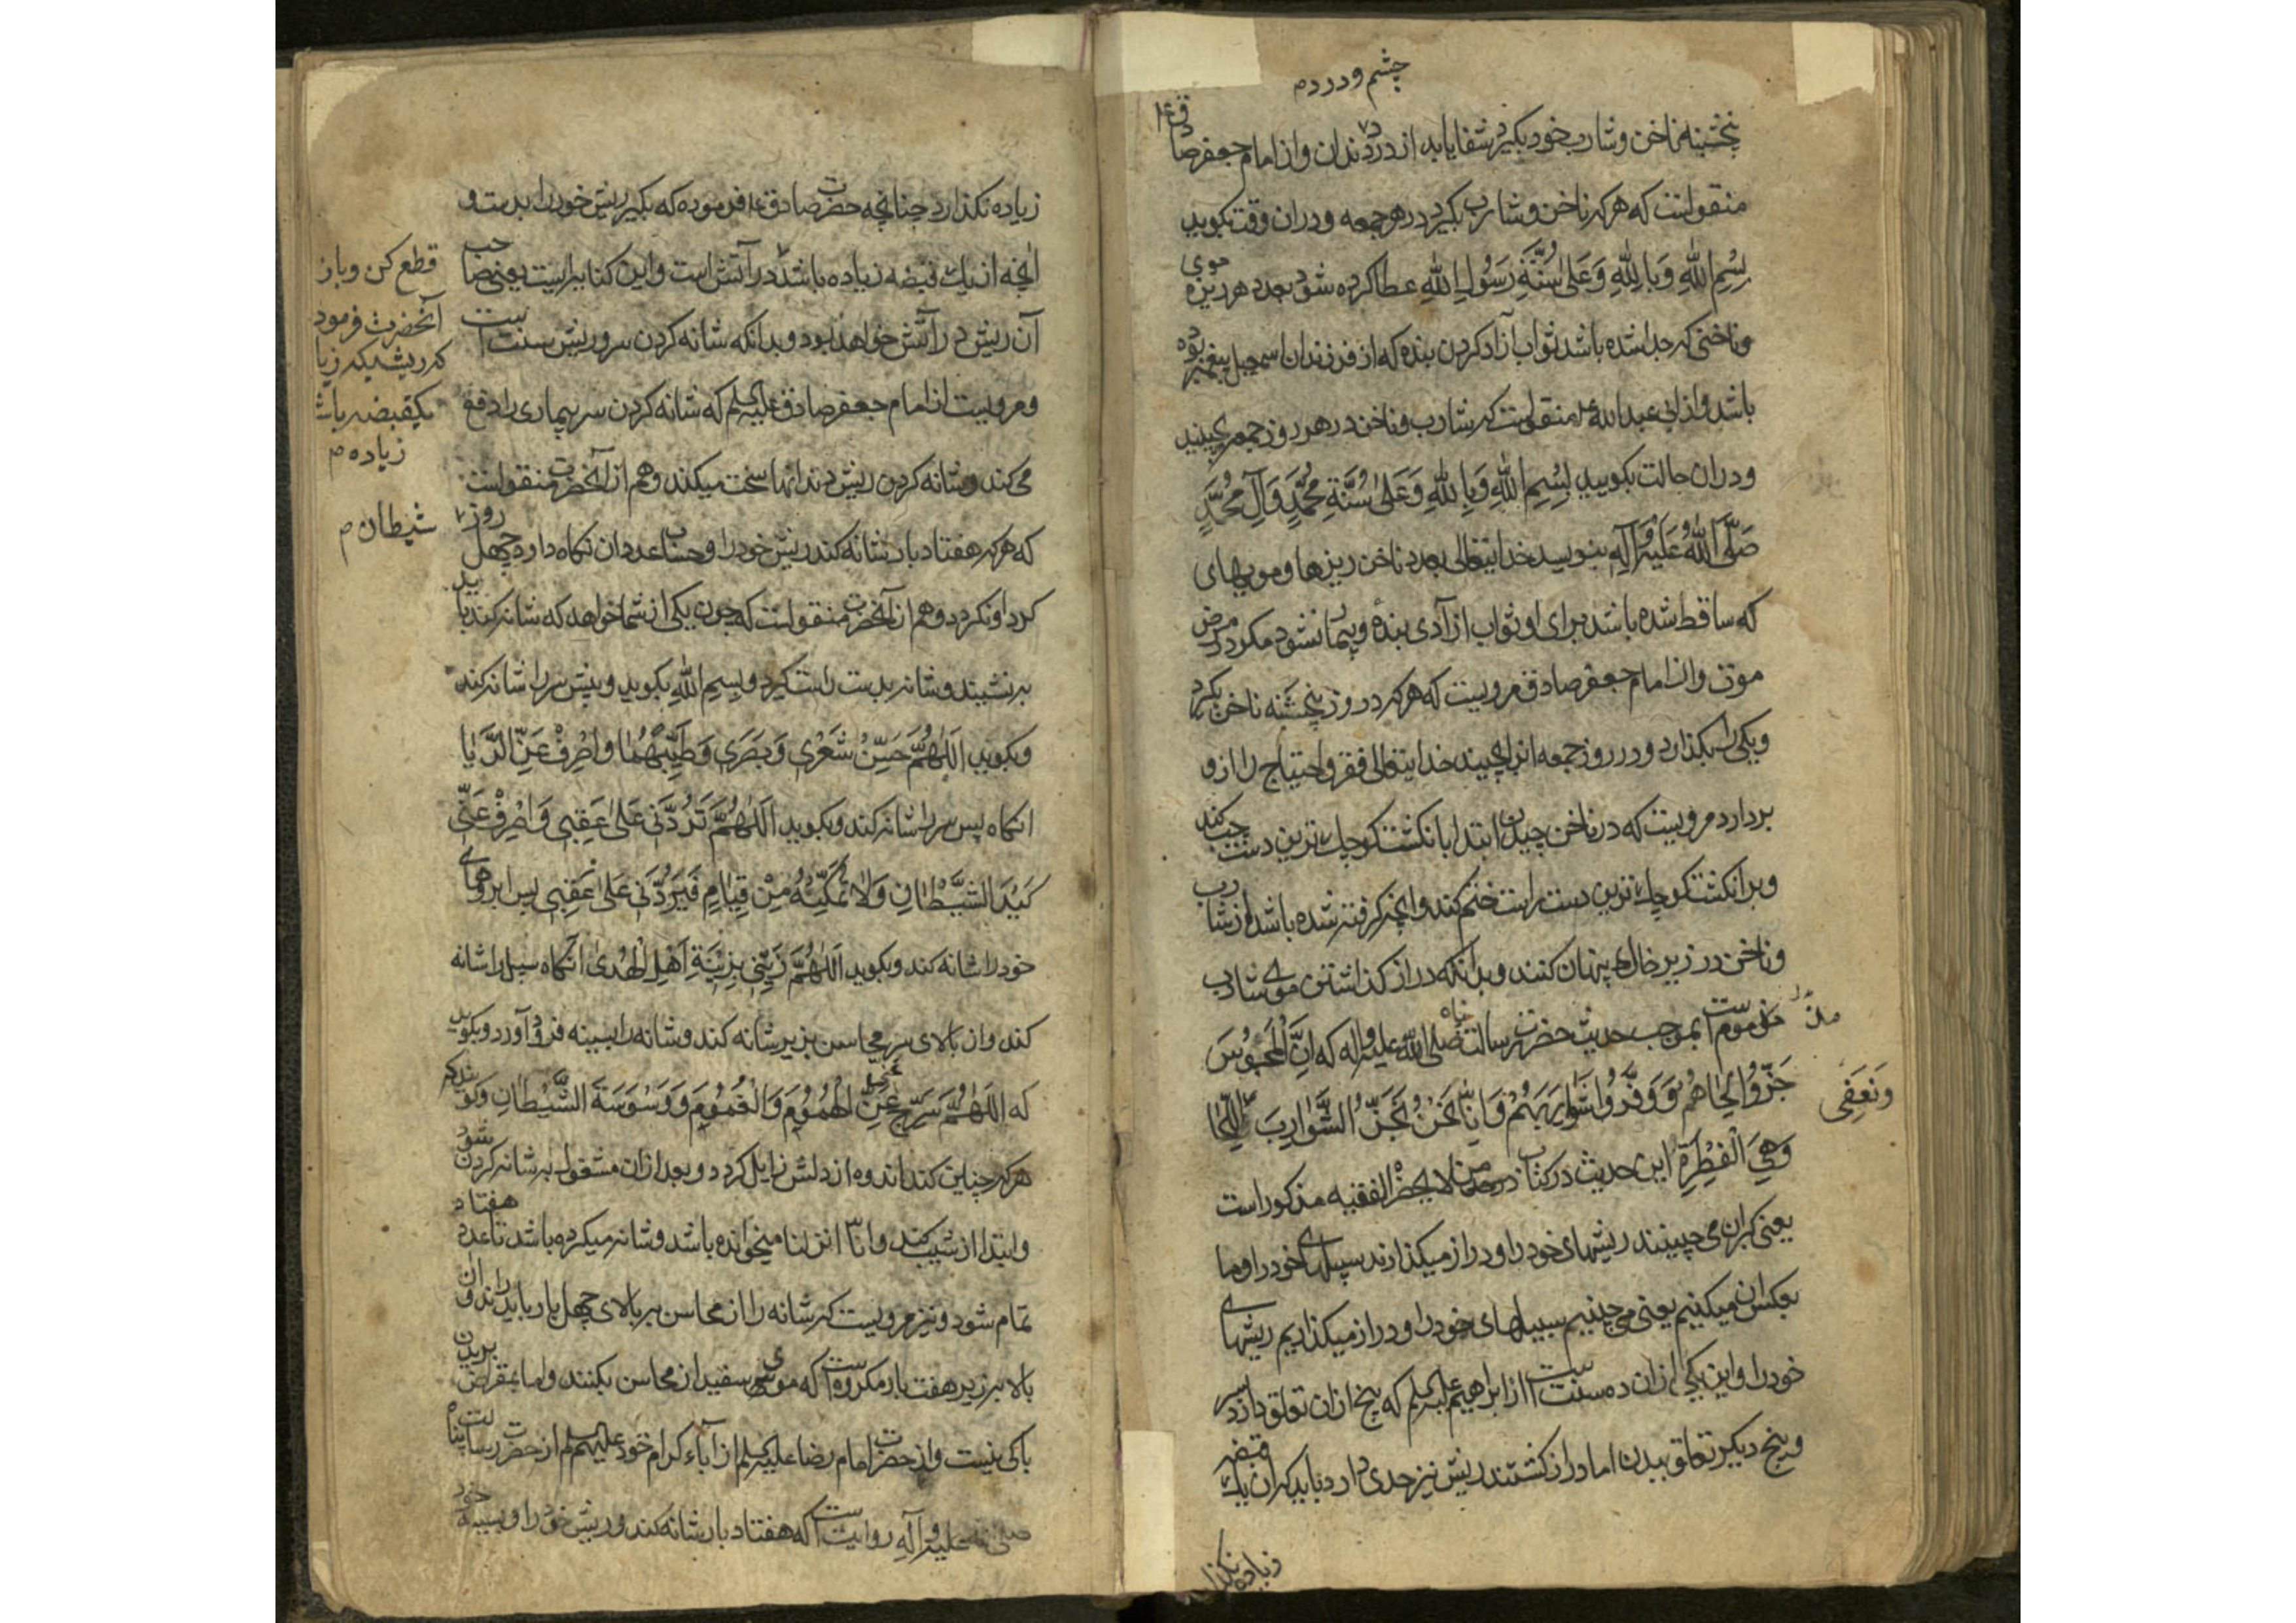 چشم و درد م
پنجشنبه ناخن و شارب خود بگیرد شفا یابد از درد دندان و از امام جعفر صادق ع
منقولست که هر که ناخن و شارب بگیرد در هر جمعه و در آن وقت بکوید
بِسْمِ اللهِ وَبِاللهِ وَعَلیٰ سُنَّةِ رَسُولِ اللهِ عطا کرده شود بعدد هر ریزه موی
و ناخنی که جدا شده باشد ثواب آزاد کردن بنده که از فرزندان اسمعیل پیغمبر بوده
باشد و از ابی عبد الله ع منقولست که شارب و ناخن در هر روز جمعه بچینید
و در ان حالت بکویید بِسْمِ اللهِ وَبِاللهِ وَعَلیٰ سُنَّةِ مُحَمَّدٍ وَآلِ مُحَمَّدٍ
صَلَّی اللهُ عَلَیْهِ وَآلِهِ بنویسد خدایتعالی بعدد ناخن ریزها و مویهای
که ساقط شده باشد برای او ثواب ازادی بندهٔ و بیمار نشود مکر در مرض
موت و از امام جعفر صادق مرویست که هر که در روز پنجشنبه ناخن بکیرد
و یکی را بکذارد و در روز جمعه انرا بچیند خدایتعالی فقر و احتیاج را از و
بردارد مرویست که در ناخن چیدن ابتدا بانکشت کوچک ترین دست چپ کند
و بر انکشت کوچک ترین دست راست ختم کند و انچه کرفته شده باشد از شارب
و ناخن در زیر خاک پنهان کنند و بدانکه دراز کذاشتن موی شارب
مذموم است بموجب حدیث حضرت رسالت پناه صلی الله علیه و اله که اِنَّ الْمَجُوسَ
جَزُّوا لِحَاهُمْ وَ وَفَّرُوا شَوَارِبَهُمْ وَ اِنَّا نَحْنُ نَجُزُّ الشَّوَارِبَ اللِّحَا
وَنُعْفِی
وَهِیَ الْفِطْرَةُ این حدیث در کتاب من لا یحضر الفقیه مذکور است
یعنی کبران می چینند ریشهای خود را و دراز میکذارند سبیلهای خود را و ما
بعکس ان میکنیم یعنی می چینیم سبیلهای خود را و دراز میکذاریم ریشهای
خود را و این یکی از ان ده سنت است از ابراهیم علیه السلام که پنج از ان تعلق دارد بسر
و پنج دیکر تعلق ببدن اما دراز کشتن ریش نیز حدی دارد باید که از یک قبضه
زیاده نکذارد
زیاده نکذارد چنانچه حضرت صادق ع فرموده که بکیر ریش خود را بدست و
انچه از یک قبضه زیاده باشد در آتش است و این کنایه است یعنی صاحب
آن ریش در آتش خواهد بود و بدانکه شانه کردن سر و ریش سنت است
و مرویست از امام جعفر صادق علیه السلام که شانه کردن سر بیماری را دفع
می کند و شانه کردن ریش دندانها سخت میکند و هم از آنحضرت منقولست
که هر که هفتاد بار شانه کند ریش خود را و حساب عدد ان نکاه دارد چهل روز
کرد او نکردد و هم از آنحضرت منقولست که چون یکی از شما خواهد که شانه کند باید
بنشیند و شانه بدست راست کیرد و بِسْمِ اللهِ بکوید و پیش سر را شانه کند
و بکوید اَللّٰهُمَّ حَسِّنْ شَعْرِی وَ بَصَرِی وَ طَیِّبْهُمَا وَاصْرِفْ عَنِّی
انکاه پس سر را شانه کند و بکوید اَللّٰهُمَّ تَرُدَّنِی عَلیٰ عَقِبِی وَاصْرِفْ عَنِّی
کَیْدَ الشَّیْطَانِ وَلَا تُمَکِّنْهُ مِنْ قِیَامِ فَیَرُدَّنِی عَلیٰ عَقِبِی پس ابروهای
خود را شانه کند و بکوید اَللّٰهُمَّ زَیِّنِّی بِزِیْنَةِ اَهْلِ الْهُدیٰ انکاه سبیل را شانه
کند و از بالای سر محاسن بزیر شانه کند و شانه را بسینه فرود آورد و بکوید
که اَللّٰهُمَّ سَرِّحْ عَنِّی الْهُمُومَ وَالْغُمُومَ وَ وَسْوَسَةَ الشَّیْطَانِ
هر که چنین کند اندوه از دلش زایل کردد و بعد از ان مشغول بشانه کردن شود
و ابتدا از شیب کند و انا انزلنا میخوانده باشد و شانه میکرده باشد تا عدد هفتاد
تمام شود و نیز مرویست که شانه را از محاسن ببالای چهل بار باید راند و از
بالا بزیر هفت بار مکروه است که موی سفید از محاسن بکنند و اما بمقراض بریدن
باکی نیست و از حضرت امام رضا علیه السلام از آباء کرام خود علیهم السلام از حضرت رسالت پناه
صلی الله علیه و آله روایت است که هفتاد بار شانه کند ریش خود را و بسینه خود
قطع کن و باز
آنحضرت فرمود
که ریشی که زیا
یکقبضه باش
زیاده م
شیطان م